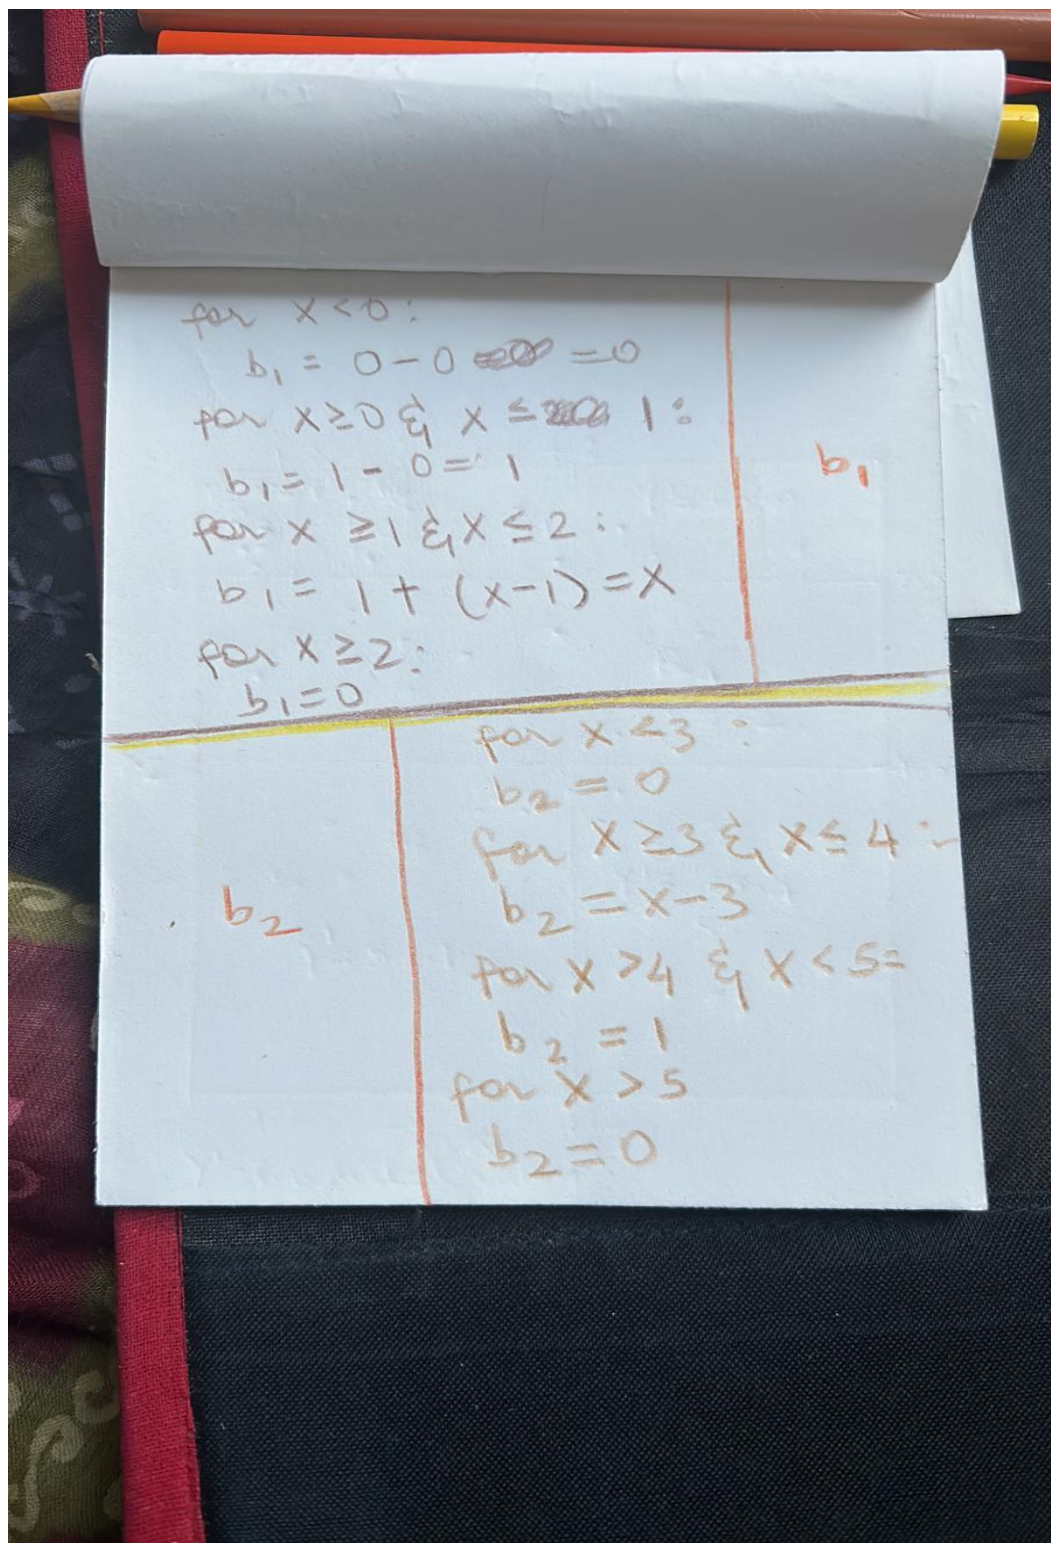 for x < 0 :
b₁ = 0 - 0 = 0
for x ≥ 0 & x ≤ 1 :
b₁ = 1 - 0 = 1
for x ≥ 1 & x ≤ 2 :
b₁ = 1 + (x-1) = x
for x ≥ 2 :
b₁ = 0
b₁
b₂
for x < 3 :
b₂ = 0
for x ≥ 3 & x ≤ 4 :-
b₂ = x - 3
for x > 4 & x < 5 =
b₂ = 1
for x > 5
b₂ = 0